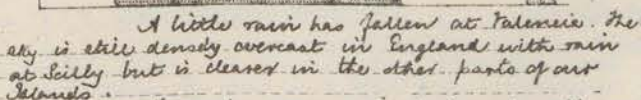 A little rain has fallen at Valencia. The
sky is still densely overcast in England with rain
at Scilly but is clearer in the other parts of our
Islands.